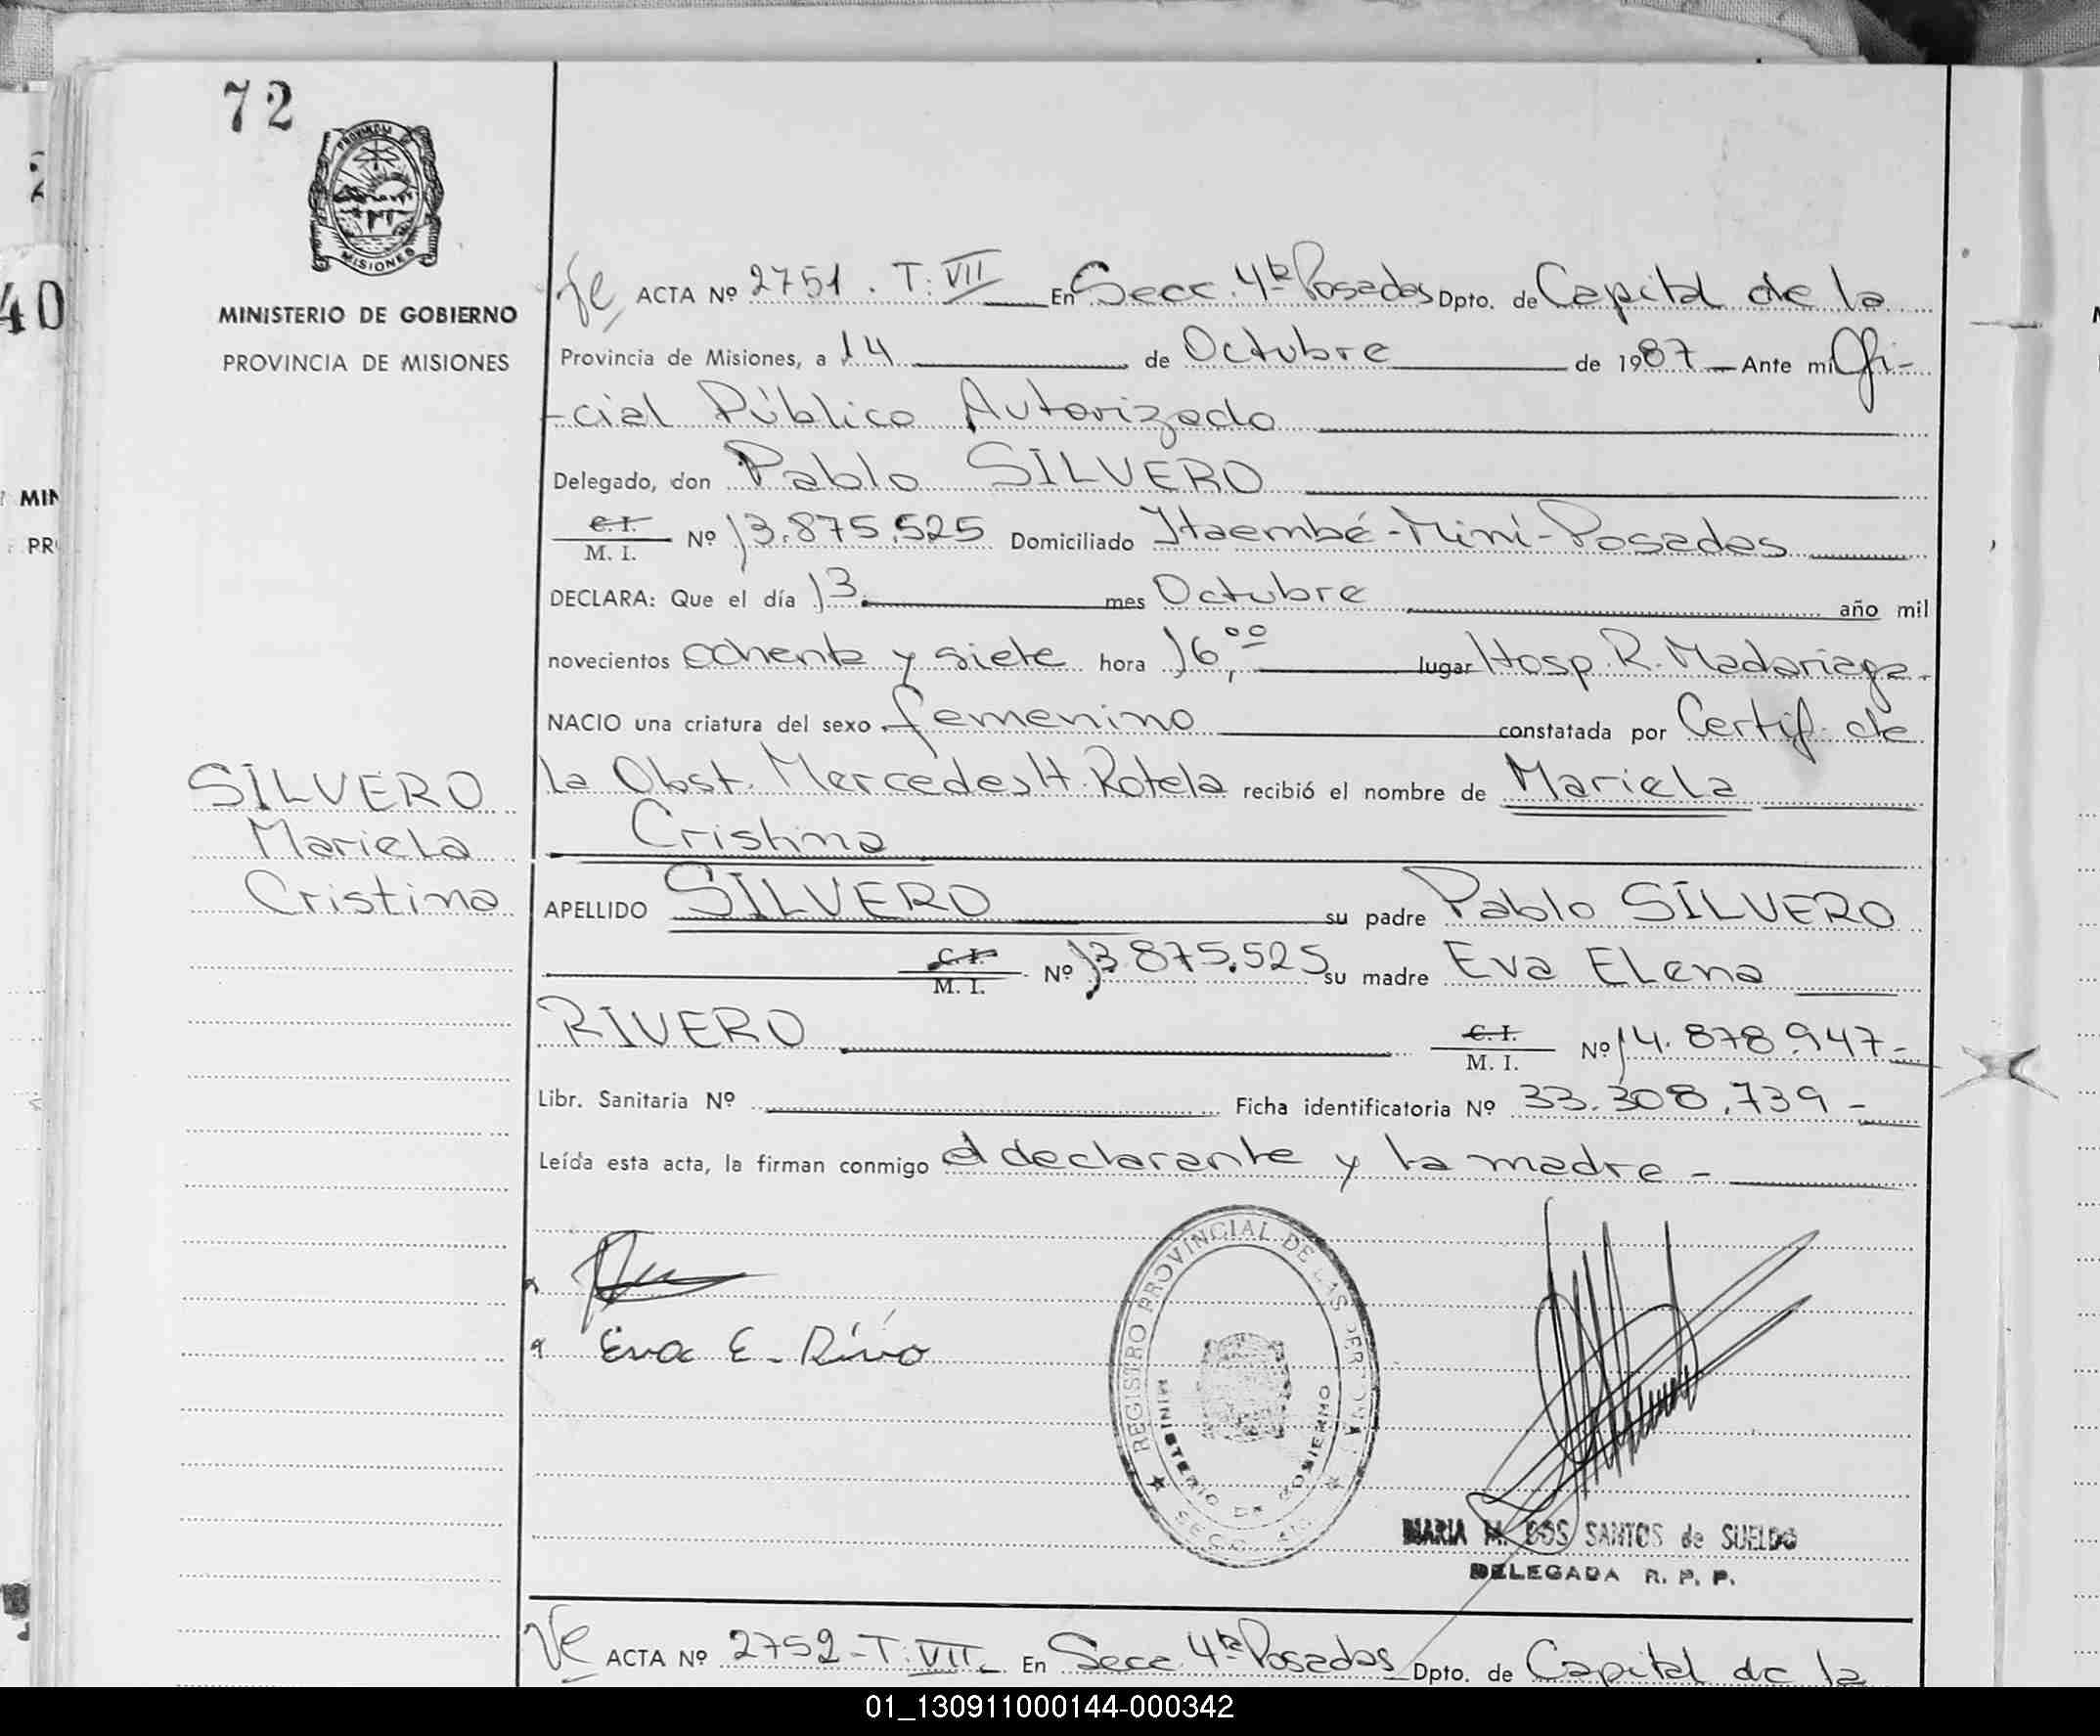 72
PROVINCIA DE
MISIONES
MINISTERIO DE GOBIERNO
PROVINCIA DE MISIONES
40
MIN
PR
ACTA Nº 2751. T: VII En Secc. 4ta Posadas Dpto. de Capital de la
Provincia de Misiones, a 14 de Octubre de 1987 Ante mi Ofi-
-cial Público Autorizado
Delegado, don Pablo SILVERO
C. I.
M. I. Nº 13.875.525 Domiciliado Itaembé-Miní-Posadas
DECLARA: Que el día 13 mes Octubre año mil
novecientos ochenta y siete hora 16,00 lugar Hosp. R. Madariaga.
NACIO una criatura del sexo femenino constatada por Certif. de
La Obst. Mercedes H. Rotela recibió el nombre de Mariela
Cristina
SILVERO
Mariela
Cristina
APELLIDO SILVERO su padre Pablo SILVERO
C. I.
M. I. Nº 13.875.525 su madre Eva ELena
RIVERO C. I.
M. I. Nº 14.878.947-
Libr. Sanitaria Nº Ficha identificatoria Nº 33.308.739-
Leída esta acta, la firman conmigo el declarante y la madre-
Eva E.
REGISTRO PROVINCIAL DE LAS PERSONAS
MINISTERIO DE GOBIERNO
MARIA M. DOS SANTOS de SUELDO
DELEGADA R. P. P.
ACTA Nº 2752-T: VII- En Secc. 4ta Posadas Dpto. de Capital de la
01_130911000144-000342